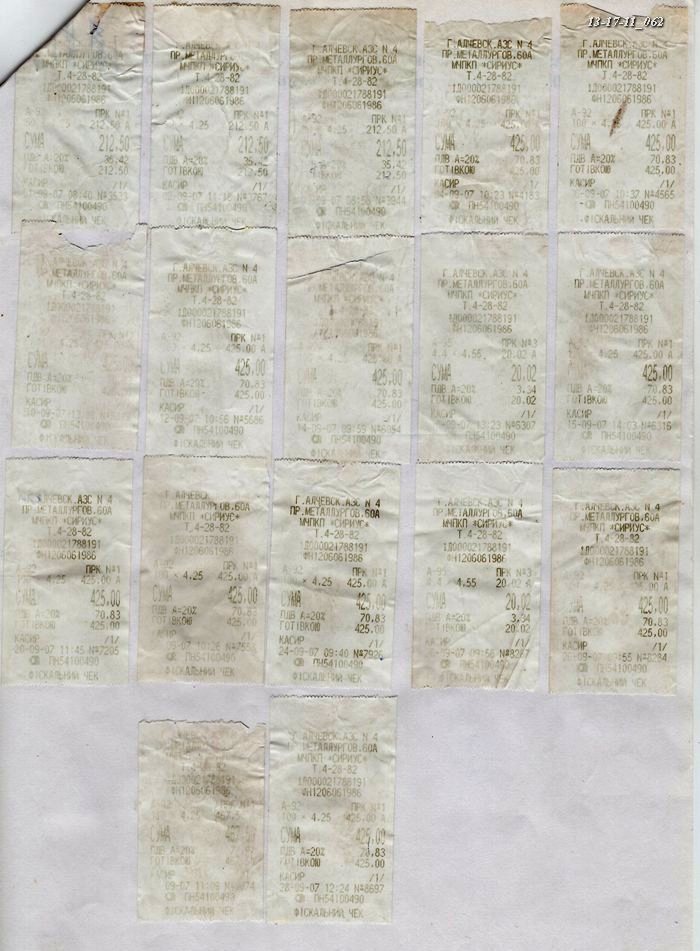 13-17-11_062
Г.АЛЧЕВСК.АЗС N 4
ПР.МЕТАЛЛУРГОВ.60А
МЧПКП *СИРИУС*
Т.4-28-82
ІД000021788191
ФН1206061986
А-92 ПРК №1
212.50 А
СУМА 212.50
ПДВ А=20% 35.42
ГОТІВКОЮ 212.50
КАСИР /1/
-09-07 08:40 №3533
ПН54100490
Г.АЛЧЕВСК.АЗС N 4
ПР.МЕТАЛЛУРГОВ.60А
МЧПКП *СИРИУС*
Т.4-28-82
ІД000021788191
ФН1206061986
А-92 ПРК №1
× 4.25 212.50 А
СУМА 212.50
ПДВ А=20% 35.42
ГОТІВКОЮ 212.50
КАСИР /1/
ПН54100490
ФІСКАЛЬНИЙ ЧЕК
Г.АЛЧЕВСК.АЗС N 4
ПР.МЕТАЛЛУРГОВ.60А
МЧПКП *СИРИУС*
Т.4-28-82
ІД000021788191
ФН1206061986
А-92 ПРК №1
4.25 212.50 А
СУМА 212.50
ПДВ А=20% 35.42
ГОТІВКОЮ 212.50
КАСИР /1/
№3944
ПН54100490
ФІСКАЛЬНИЙ ЧЕК
Г.АЛЧЕВСК.АЗС N 4
ПР.МЕТАЛЛУРГОВ.60А
МЧПКП *СИРИУС*
Т.4-28-82
ІД000021788191
ФН1206061986
А-92 ПРК №1
4.25 425.00 А
СУМА 425.00
ПДВ А=20% 70.83
ГОТІВКОЮ 425.00
КАСИР /1/
-09-07 10:23 №4183
ПН54100490
ФІСКАЛЬНИЙ ЧЕК
Г.АЛЧЕВСК.АЗС N 4
ПР.МЕТАЛЛУРГОВ.60А
МЧПКП *СИРИУС*
Т.4-28-82
ІД000021788191
ФН1206061986
А-92 ПРК №1
425.00 А
СУМА 425.00
ПДВ А=20% 70.83
ГОТІВКОЮ 425.00
КАСИР /1/
-09-07 10:37 №4565
ПН54100490
ФІСКАЛЬНИЙ ЧЕК
Г.АЛЧЕВСК.АЗС N 4
ПР.МЕТАЛЛУРГОВ.60А
МЧПКП *СИРИУС*
Т.4-28-82
ПРК №1
4.25 425.00 А
СУМА 425.00
ПДВ А=20% 70.83
ГОТІВКОЮ 425.00
КАСИР /1/
ПН54100490
ФІСКАЛЬНИЙ ЧЕК
Г.АЛЧЕВСК.АЗС N 4
ПР.МЕТАЛЛУРГОВ.60А
МЧПКП *СИРИУС*
Т.4-28-82
ІД000021788191
ФН1206061986
А-92 ПРК №1
4.25 425.00 А
СУМА 425.00
ПДВ А=20% 70.83
ГОТІВКОЮ 425.00
КАСИР /1/
12-09-07 10:56 №5686
ПН54100490
ФІСКАЛЬНИЙ ЧЕК
Г.АЛЧЕВСК.АЗС N 4
ПР.МЕТАЛЛУРГОВ.60А
МЧПКП *СИРИУС*
Т.4-28-82
ІД000021788191
ФН1206061986
ПРК №1
4.25 425.00 А
СУМА 425.00
ПДВ А=20% 70.83
ГОТІВКОЮ 425.00
КАСИР /1/
14-09-07 09:59
ПН54100490
ФІСКАЛЬНИЙ ЧЕК
Г.АЛЧЕВСК.АЗС N 4
ПР.МЕТАЛЛУРГОВ.60А
МЧПКП *СИРИУС*
Т.4-28-82
ІД000021788191
ФН1206061986
А-95 ПРК №3
4.4 × 4.55 20.02 А
СУМА 20.02
ПДВ А=20% 3.34
ГОТІВКОЮ 20.02
КАСИР /1/
-09-07 13:23 №6307
ПН54100490
ФІСКАЛЬНИЙ ЧЕК
Г.АЛЧЕВСК.АЗС N 4
ПР.МЕТАЛЛУРГОВ.60А
МЧПКП *СИРИУС*
Т.4-28-82
ІД000021788191
ФН1206061986
ПРК №1
4.25 425.00 А
СУМА 425.00
ПДВ А=20% 70.83
ГОТІВКОЮ 425.00
КАСИР /1/
15-09-07 14:03 №6316
ПН54100490
ФІСКАЛЬНИЙ ЧЕК
Г.АЛЧЕВСК.АЗС N 4
ПР.МЕТАЛЛУРГОВ.60А
МЧПКП *СИРИУС*
Т.4-28-82
ІД000021788191
ФН1206061986
А-92 ПРК №1
× 4.25 425.00 А
СУМА 425.00
ПДВ А=20% 70.83
ГОТІВКОЮ 425.00
КАСИР /1/
20-09-07 11:45 №7205
ПН54100490
ФІСКАЛЬНИЙ ЧЕК
Г.АЛЧЕВСК.АЗС N 4
ПР.МЕТАЛЛУРГОВ.60А
МЧПКП *СИРИУС*
Т.4-28-82
ІД000021788191
ФН1206061986
А-92 ПРК №1
× 4.25 425.00 А
СУМА 425.00
ПДВ А=20% 70.83
ГОТІВКОЮ 425.00
КАСИР /1/
ПН54100490
ФІСКАЛЬНИЙ ЧЕК
Г.АЛЧЕВСК.АЗС N 4
ПР.МЕТАЛЛУРГОВ.60А
МЧПКП *СИРИУС*
Т.4-28-82
ІД000021788191
ФН1206061986
А-92 ПРК №1
× 4.25 425.00 А
СУМА 425.00
ПДВ А=20% 70.83
ГОТІВКОЮ 425.00
КАСИР /1/
24-09-07 09:40 №7926
ПН54100490
ФІСКАЛЬНИЙ ЧЕК
Г.АЛЧЕВСК.АЗС N 4
ПР.МЕТАЛЛУРГОВ.60А
МЧПКП *СИРИУС*
Т.4-28-82
ІД000021788191
ФН1206061986
А-95 ПРК №3
4.4 × 4.55 20.02 А
СУМА 20.02
ПДВ А=20% 3.34
ГОТІВКОЮ 20.02
КАСИР /1/
ПН54100490
ФІСКАЛЬНИЙ ЧЕК
Г.АЛЧЕВСК.АЗС N 4
ПР.МЕТАЛЛУРГОВ.60А
МЧПКП *СИРИУС*
Т.4-28-82
ІД000021788191
ФН1206061986
А-92 ПРК №1
425.00 А
СУМА 425.00
ПДВ А=20% 70.83
ГОТІВКОЮ 425.00
КАСИР /1/
№8284
ПН54100490
ФІСКАЛЬНИЙ ЧЕК
МЧПКП *СИРИУС*
Т.4-28-82
ІД000021788191
ФН1206061986
А-92 ПРК №1
4.25
СУМА
ПДВ А=20%
ГОТІВКОЮ
КАСИР /1/
09-07 11:09
ПН54100490
ФІСКАЛЬНИЙ ЧЕК
Г.АЛЧЕВСК.АЗС N 4
ПР.МЕТАЛЛУРГОВ.60А
МЧПКП *СИРИУС*
Т.4-28-82
ІД000021788191
ФН1206061986
А-92 ПРК №1
100 × 4.25 425.00 А
СУМА 425.00
ПДВ А=20% 70.83
ГОТІВКОЮ 425.00
КАСИР /1/
28-09-07 12:24 №8697
ПН54100490
ФІСКАЛЬНИЙ ЧЕК